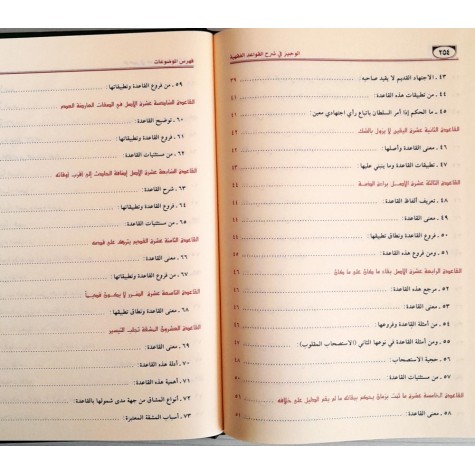 ٢٥٤
الوجيز في شرح القواعد الفقهية
٤٣ ـ الاجتهاد القديم لا يقيد صاحبه: ٣٩
٤٤ ـ من تطبيقات هذه القاعدة: ٤١
٤٥ ـ ما الحكم إذا أمر السلطان باتباع رأي اجتهادي معين: ٤١
القاعدة الثانية عشرة اليقين لا يزول بالشك ٤٢
٤٦ ـ معنى القاعدة وأصلها:
٤٧ ـ تطبيقات القاعدة وما ينبني عليها:
القاعدة الثالثة عشرة الأصل براءة الذمة ٤٤
٤٨ ـ تعريف ألفاظ القاعدة:
٤٩ ـ معنى القاعدة:
٥٠ ـ فروع القاعدة ونطاق تطبيقها:
٥١ ـ ومن فروع هذه القاعدة:
القاعدة الرابعة عشرة الأصل بقاء ما كان على ما كان ٤٦
٥٢ ـ مرجع هذه القاعدة:
٥٣ ـ معنى القاعدة:
٥٤ ـ من أمثلة القاعدة وفروعها:
٥٥ ـ ومن أمثلة القاعدة في نوعها الثاني (الاستصحاب المقلوب):
٥٦ ـ حجية الاستصحاب:
٥٧ ـ من مستثنيات القاعدة:
القاعدة الخامسة عشرة ما ثبت بزمان يحكم ببقائه ما لم يقم الدليل على خلافه ٥١
٥٨ ـ معنى القاعدة: ٥١
فهرس الموضوعات
٥٩ ـ من فروع القاعدة وتطبيقاتها:
القاعدة السادسة عشرة الأصل في الصفات العارضة العدم
٦٠ ـ توضيح القاعدة:
٦١ ـ فروع القاعدة وتطبيقاتها:
٦٢ ـ من مستثنيات القاعدة:
القاعدة السابعة عشرة الأصل إضافة الحادث إلى أقرب أوقاته
٦٣ ـ شرح القاعدة:
٦٤ ـ فروع القاعدة وتطبيقاتها:
٦٥ ـ من مستثنيات القاعدة:
القاعدة الثامنة عشرة القديم يترك على قدمه
٦٦ ـ معنى القاعدة:
٦٧ ـ من فروع القاعدة وتطبيقاتها:
القاعدة التاسعة عشرة الضرر لا يكون قديماً
٦٨ ـ معنى القاعدة ونطاق تطبيقها:
القاعدة العشرون المشقة تجلب التيسير
٦٩ ـ معنى القاعدة:
٧٠ ـ أدلة هذه القاعدة:
٧١ ـ أهمية هذه القاعدة:
٧٢ ـ أنواع المشاق من جهة مدى شمولها بالقاعدة:
٧٣ ـ أسباب المشقة المعتبرة: